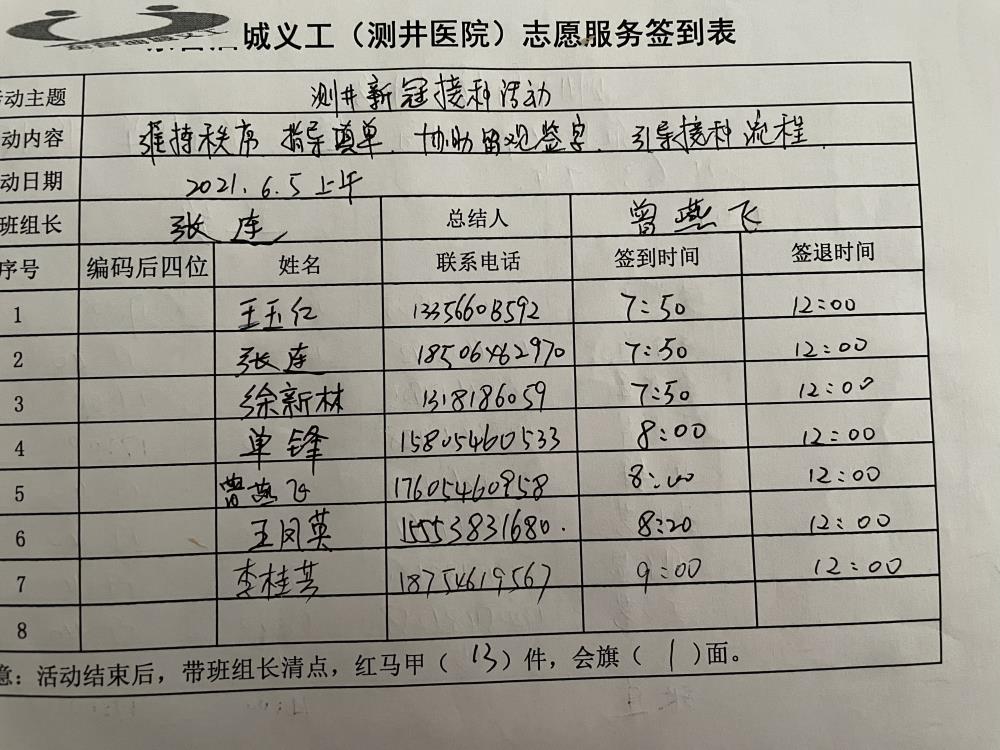 城义工（测井医院）志愿服务签到表
动主题 测井新冠接种活动
动内容 维持秩序 指导填单 协助留观签字 引导接种流程
动日期 2021.6.5上午
班组长 张连 总结人 曾燕飞
序号 编码后四位 姓名 联系电话 签到时间 签退时间
1 王玉红 13356608592 7:50 12:00
2 张连 18506462970 7:50 12:00
3 徐新林 1318186059 7:50 12:00
4 单锋 15805460533 8:00 12:00
5 曾燕飞 17605460958 8:00 12:00
6 王凤英 15553831680. 8:20 12:00
7 李桂芸 18754619567 9:00 12:00
8
意：活动结束后，带班组长清点，红马甲（13）件，会旗（1）面。